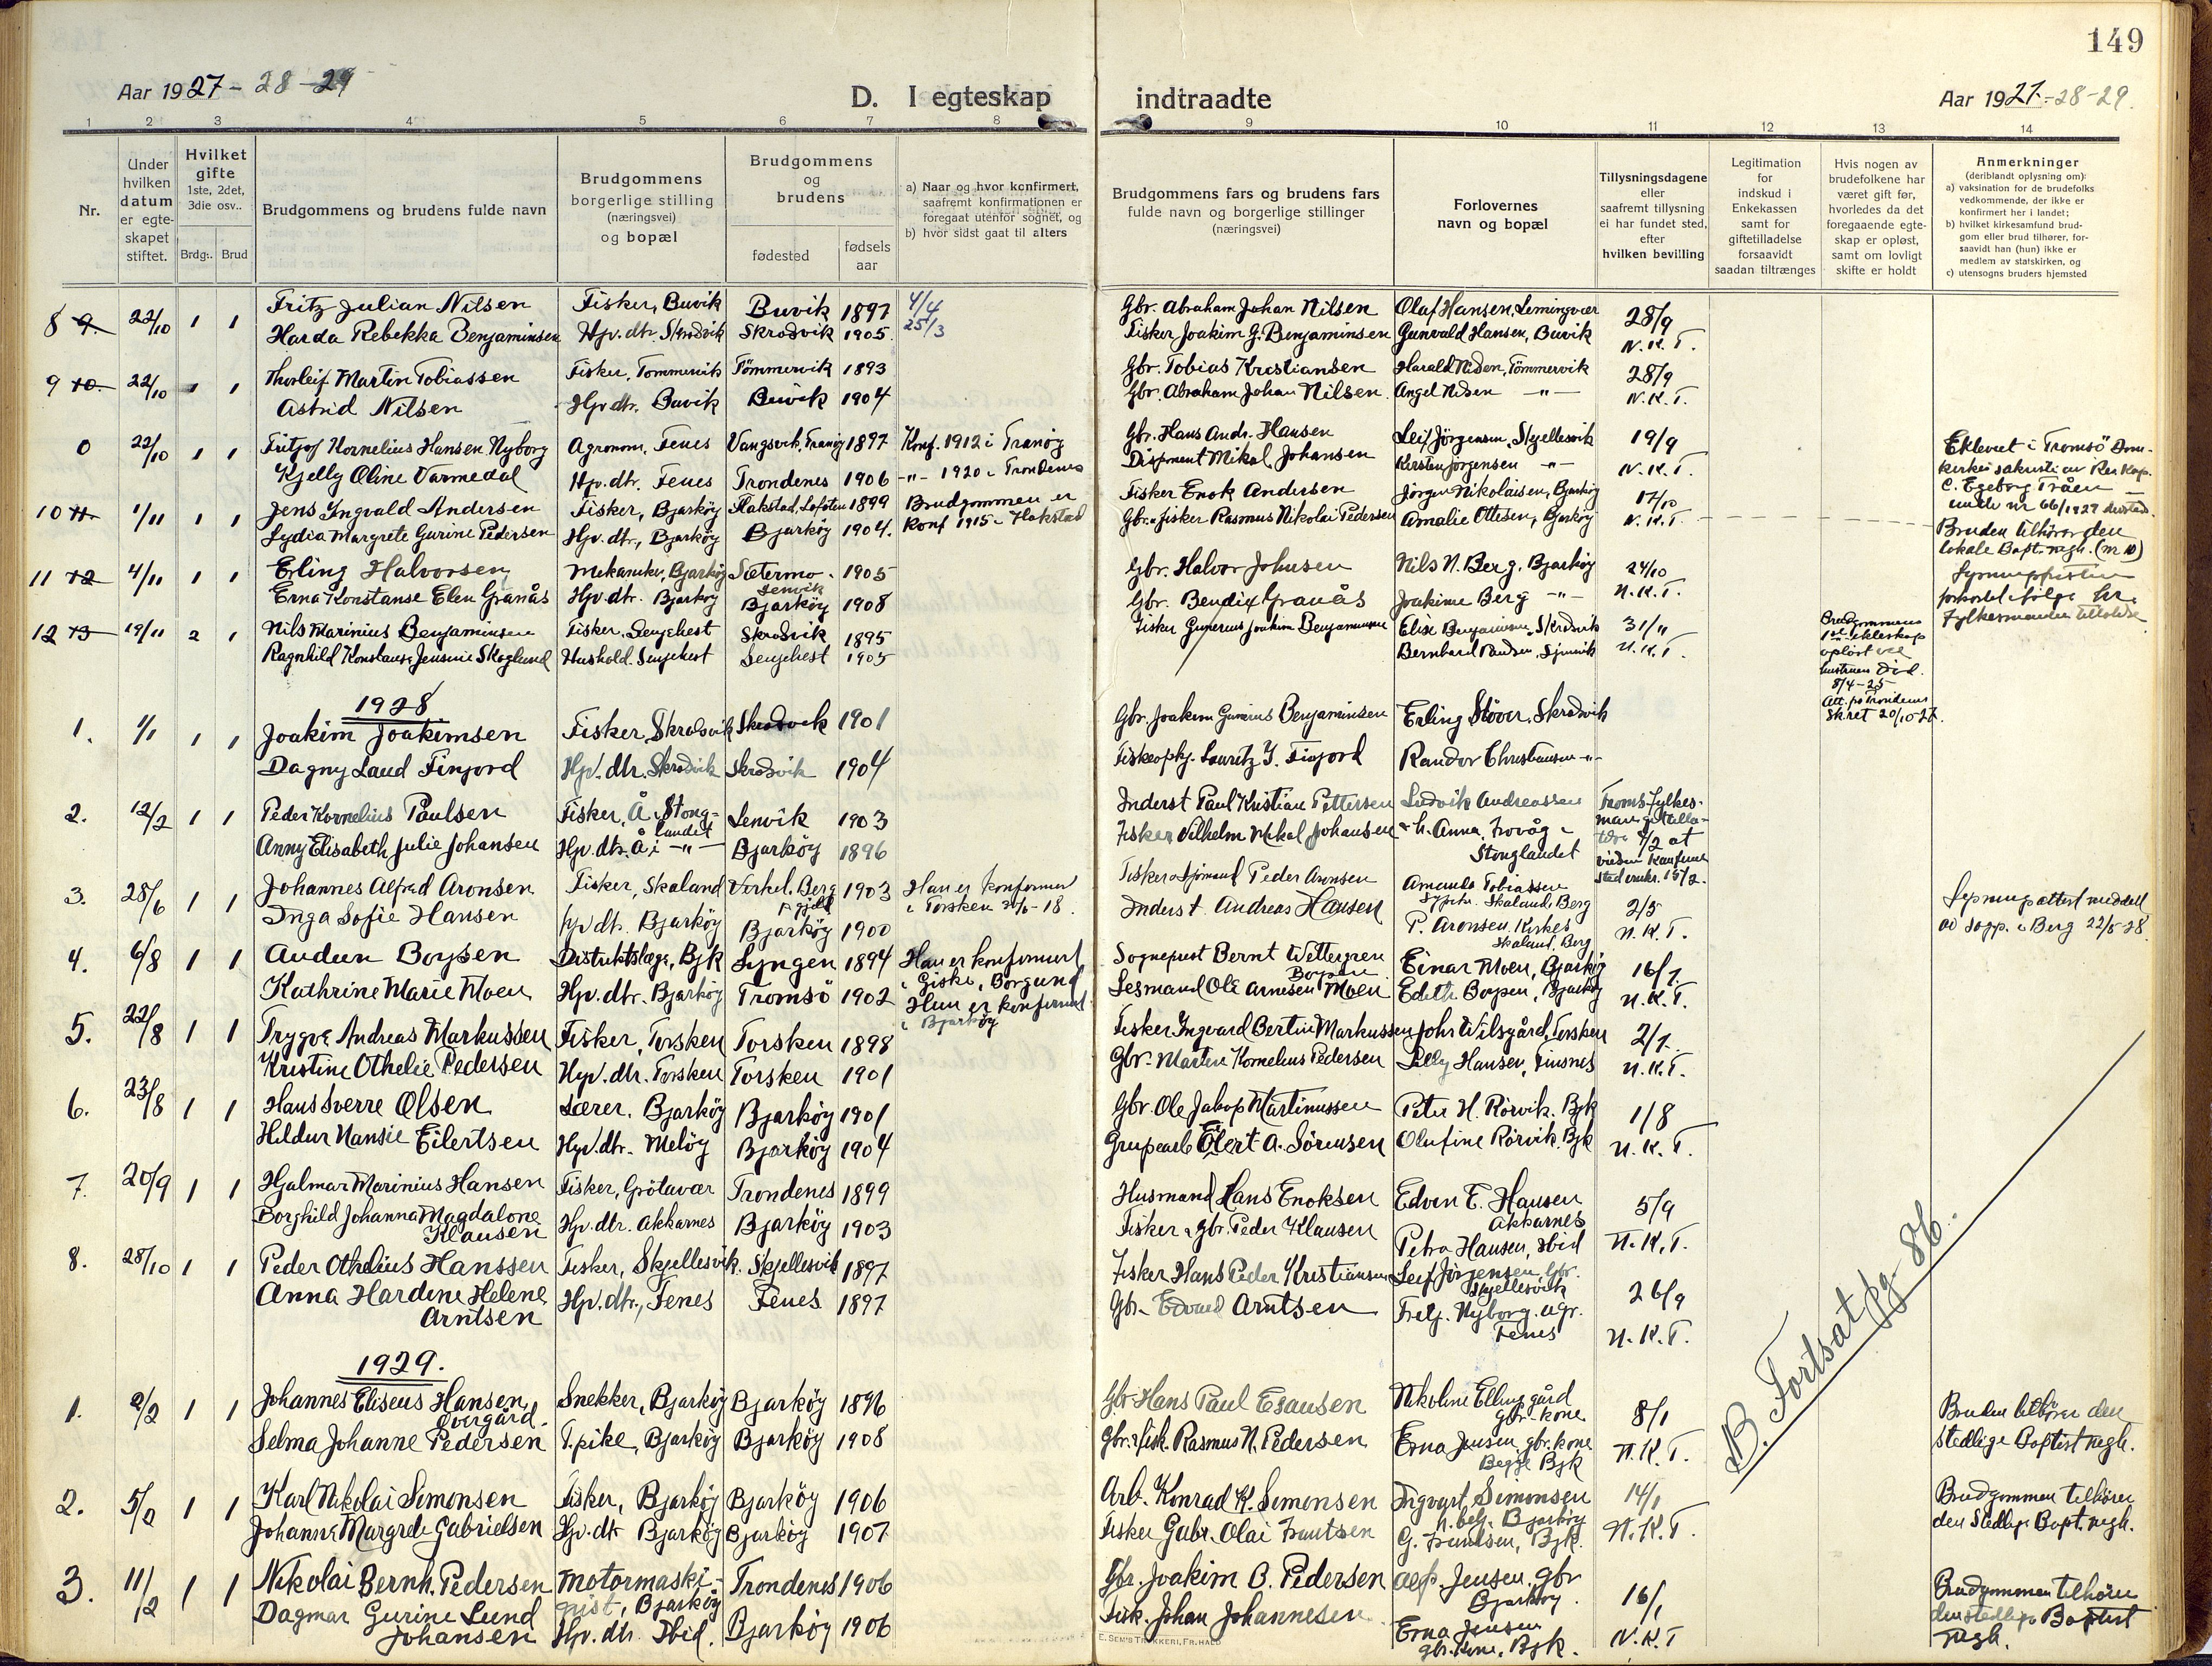 149
Aar 1927 - 28 - 29
D. I egteskap
indtraadte
Aar 1927.-28-29.
1 2 3 4 5 6 7 8 9 10 11 12 13 14
Nr.
Under hvilken datum er egte-skapet stiftet.
Hvilket gifte
1ste, 2det, 3die osv..
Brdg:. Brud
Brudgommens og brudens fulde navn
Brudgommens borgerlige stilling (næringsvei) og bopæl
Brudgommens og brudens
fødested
fødsels aar
a) Naar og hvor konfirmert, saafremt konfirmationen er foregaat utenfor sognet, og
b) hvor sidst gaat til alters
Brudgommens fars og brudens fars fulde navn og borgerlige stillinger (næringsvei)
Forlovernes navn og bopæl
Tillysningsdagene eller saafremt tillysning ei har fundet sted, efter hvilken bevilling
Legitimation for indskud i Enkekassen samt for giftetilladelse forsaavidt saadan tiltrænges
Hvis nogen av brudefolkene har været gift før, hvorledes da det foregaaende egte-skap er opløst, samt om lovligt skifte er holdt
Anmerkninger
(deriblandt oplysning om):
a) vaksination for de brudefolks vedkommende, der ikke er konfirmert her i landet;
b) hvilket kirkesamfund brud-gom eller brud tilhører, for-saavidt han (hun) ikke er medlem av statskirken, og
c) utensogns bruders hjemsted
8 9. 22/10 1 1 Fritz Julian Nilsen Fisker, Buvik Buvik 1897 4/4 Gbr. Abraham Johan Nilsen Olaf Hansen, Lemingvær 28/9
Harda Rebekka Benjaminsen Hpv. dtr. Skrodvik Skrodvik 1905. 25/3 Fisker Joakim G. Benjaminsen Gunvald Hansen, Buvik N.K.T.
9 10. 22/10 1 1 Thorleif Martin Tobiassen Fisker, Tømmervik Tömmervik 1893 Gbr. Tobias Kristiansen Harald Nilsen, Tömmervik 28/9
Astrid Nilsen Hpv dtr. Buvik Buvik 1904 Gbr. Abraham Johan Nilsen Angel Nilsen -"- N.K.T.
0 22/10 1 1 Fritjof Kornelius Hansen Nyborg Agronom, Fenes Vangsvik, Tranöy 1897 Konf. 1912 i Tranöy Gbr. Hans Andr. Hansen Leif Jörgensen, Skjellesvik 19/9
Kjelly Oline Varmedal Hpv. dtr. Fenes Trondenes 1906 -"- 1920 i Trondenes Disponent Mikal Johansen Kirsten Jörgensen -"- N.K.T.
Ekteviet i Tromsö Dom-
kirkes sakristi av Res Kap.
C. Egeborg Tråen
under nr 66/1927 dersted.
10 11. 1/11 1 1 Jens Ingvald Andersen Fisker, Bjarköy Flakstad, Lofoten 1899 Brudgommen er Fisker Enok Andersen Jörgen Nikolaisen, Bjarköy 17/10
Lydia Margrete Gurine Pedersen Hpv. dtr., Bjarköy Bjarköy 1904. Konf 1915 i Flakstad Gbr. & fisker Rasmus Nikolai Pedersen Amalie Ottesen, Bjarköy N.K.T.
Bruden tilhører den
lokale Bapt. megh. (nr 10)
11 12 4/11 1 1 Erling Halvorsen Mekaniker, Bjarköy Sætermo. Lenvik 1905 Gbr. Halvor Johnsen Nils N. Berg, Bjarköy 24/10
Erna Konstanse Elen Granås Hpv. dtr. Bjarköy Bjarköy 1908 Gbr. Bendix Granås Joakime Berg -"- N.K.T.
12 13 19/11 2 1 Nils Marinius Benjaminsen Fisker, Senjehest Skrodvik 1895 Fisker Gunerius Joakim Benjaminsen Elise Benjaminsen, Skrodvik 31/11
Ragnhild Konstanse Jensine Skoglund Hushold. Senjehest Senjehest 1905 N.K.T.
Brudgommens
1ste ekteskap
opløst ved
hustruens död.
8/4-25
Att. på Trondenes
Skret 20/10-27.
1928
1. 1/1 1 1 Joakim Joakimsen Fisker, Skrodvik Skrodvik 1901 Gbr. Joakim Gunerius Benjaminsen Erling Stöver, Skrodvik
Dagny Laud Finjord Hpv. dtr. Skrodvik Skrodvik 1904 Lauritz J. Finjord Randor Christiansen -"-
2. 12/2 1 1 Peder Kornelius Paulsen Fisker, Å i Stong-landet Lenvik 1903 Inderst Paul Kristian Pettersen Ludvik Andreassen Troms Fylkes-
Anny Elisabeth Julie Johansen Hpv. dtr. Å i -"- Bjarköy 1896 Fisker Vilhelm Mikal Johansen & h. Anna, Frovåg i Stonglandet
3. 28/6 1 1 Johannes Alfred Aronsen Fisker, Skaland Berg 1903 Han er konfirmer i Torsken Fisker & Peder Aronsen Amanda Tobiassen Skaland, Berg 2/5
Inga Sofie Hansen Hpv dtr. Bjarköy Bjarköy 1900 Inderst. Andreas Hansen P. Aronsen Skaland, Berg N.K.T.
av sogp. i Berg 22/5-28
4. 6/8 1 1 Audun Boysen Distriktslæge, Bjk Lyngen 1894 Han er konfirmert i Giske, Borgund Sogneprest Bernt Wettergren Boysen Einar Moen, Bjarköy 16/7
Kathrine Marie Moen Hpv. dtr. Bjarköy Tromsö 1902 Hun er konfirmert i Bjarköy Lesmand Ole Arnesen Moen Edith Boysen, Bjarköy N.K.T.
5. 22/8 1 1 Trygve Andreas Markussen Fisker, Torsken Torsken 1898 Fisker Ingvard Bertin Markussen Johs Wilsgård, Torsken 2/7.
Kristine Othelie Pedersen Hpv. dtr. Torsken Torsken 1901 Gbr. Martin Kornelius Pedersen Lilly Hansen, N.K.T.
6. 23/8 1 1 Hans Sverre Olsen Lærer, Bjarköy Bjarköy 1901 Gbr. Ole Jakop Martinussen Peter H. Rörvik, Bjk 1/8
Hildur Nansie Eilertsen Hpv. dtr. Melöy Bjarköy 1904 Eilert A. Sörensen Olufine Rörvik, Bjk N.K.T.
7. 20/9 1 1 Hjalmar Marinius Hansen Fisker, Grötavær Trondenes 1899 Husmand Hans Enoksen Edvin E. Hansen Akkarnes 5/9
Borghild Johanna Magdalone Klausen Hpv. dtr. Akkarnes Bjarköy 1903 Fisker & Gbr. Peder Klausen Petra Hansen, Ibid N.K.T.
8. 28/10 1 1 Peder Othelius Hanssen Fisker, Skjellesvik. Skjellesvik 1897 Fisker Hans Peder Kristiansen Leif Jörgensen, Gbr. Skjellesvik 26/9
Anna Hardine Helene Arntsen Hpv. dtr., Fenes Fenes 1897 Gbr. Edvard Arntsen Fritj. Nyborg. agr. Fenes N.K.T.
1929.
1. 2/2 1 1 Johannes Eliseus Hansen Övergård. Snekker, Bjarköy Bjarköy 1896 Gbr. Hans Paul Esausen Nikoline Ellingsgård gbr-kone 8/1 Bruden tilhörer den
Selma Johanne Pedersen T.pike, Bjarköy Bjarköy 1908 Gbr. & fisk. Rasmus N. Pedersen Erna Jensen, gbr. kone Begge Bjk N.K.T. stedlige Baptist megh.
2. 5/2 1 1 Karl Nikolai Simonsen Fisker, Bjarköy Bjarköy 1906 Arb. Konrad K. Simonsen Ingvart Simonsen Bjarköy 14/1 Brudgommen tilhører
Johanna Margrete Gabrielsen Hpv. dtr Bjarköy Bjarköy 1907 Fisker Gabr. Olai Frantsen G. Frantsen, Bjk. N.K.T. den stedlige Bapt. megh.
3. 11/2 1 1 Nikolai Bernh. Pedersen Motormaski-nist, Bjarköy Trondenes 1906 Gbr. Joakim B. Pedersen Alf. Jensen, gbr Bjarköy. 16/1 Brudgommen tilhører
Dagmar Gurine Lund Johansen Hpv. dtr. Ibid. Bjarköy 1906 Fisk. Johan Johannesen Erna Jensen gbr. kone, Bjk. N.K.T den stedlige Baptist megh.
B. Fortsat pg 86.
E. SEM'S TRYKKERI, FR.HALD